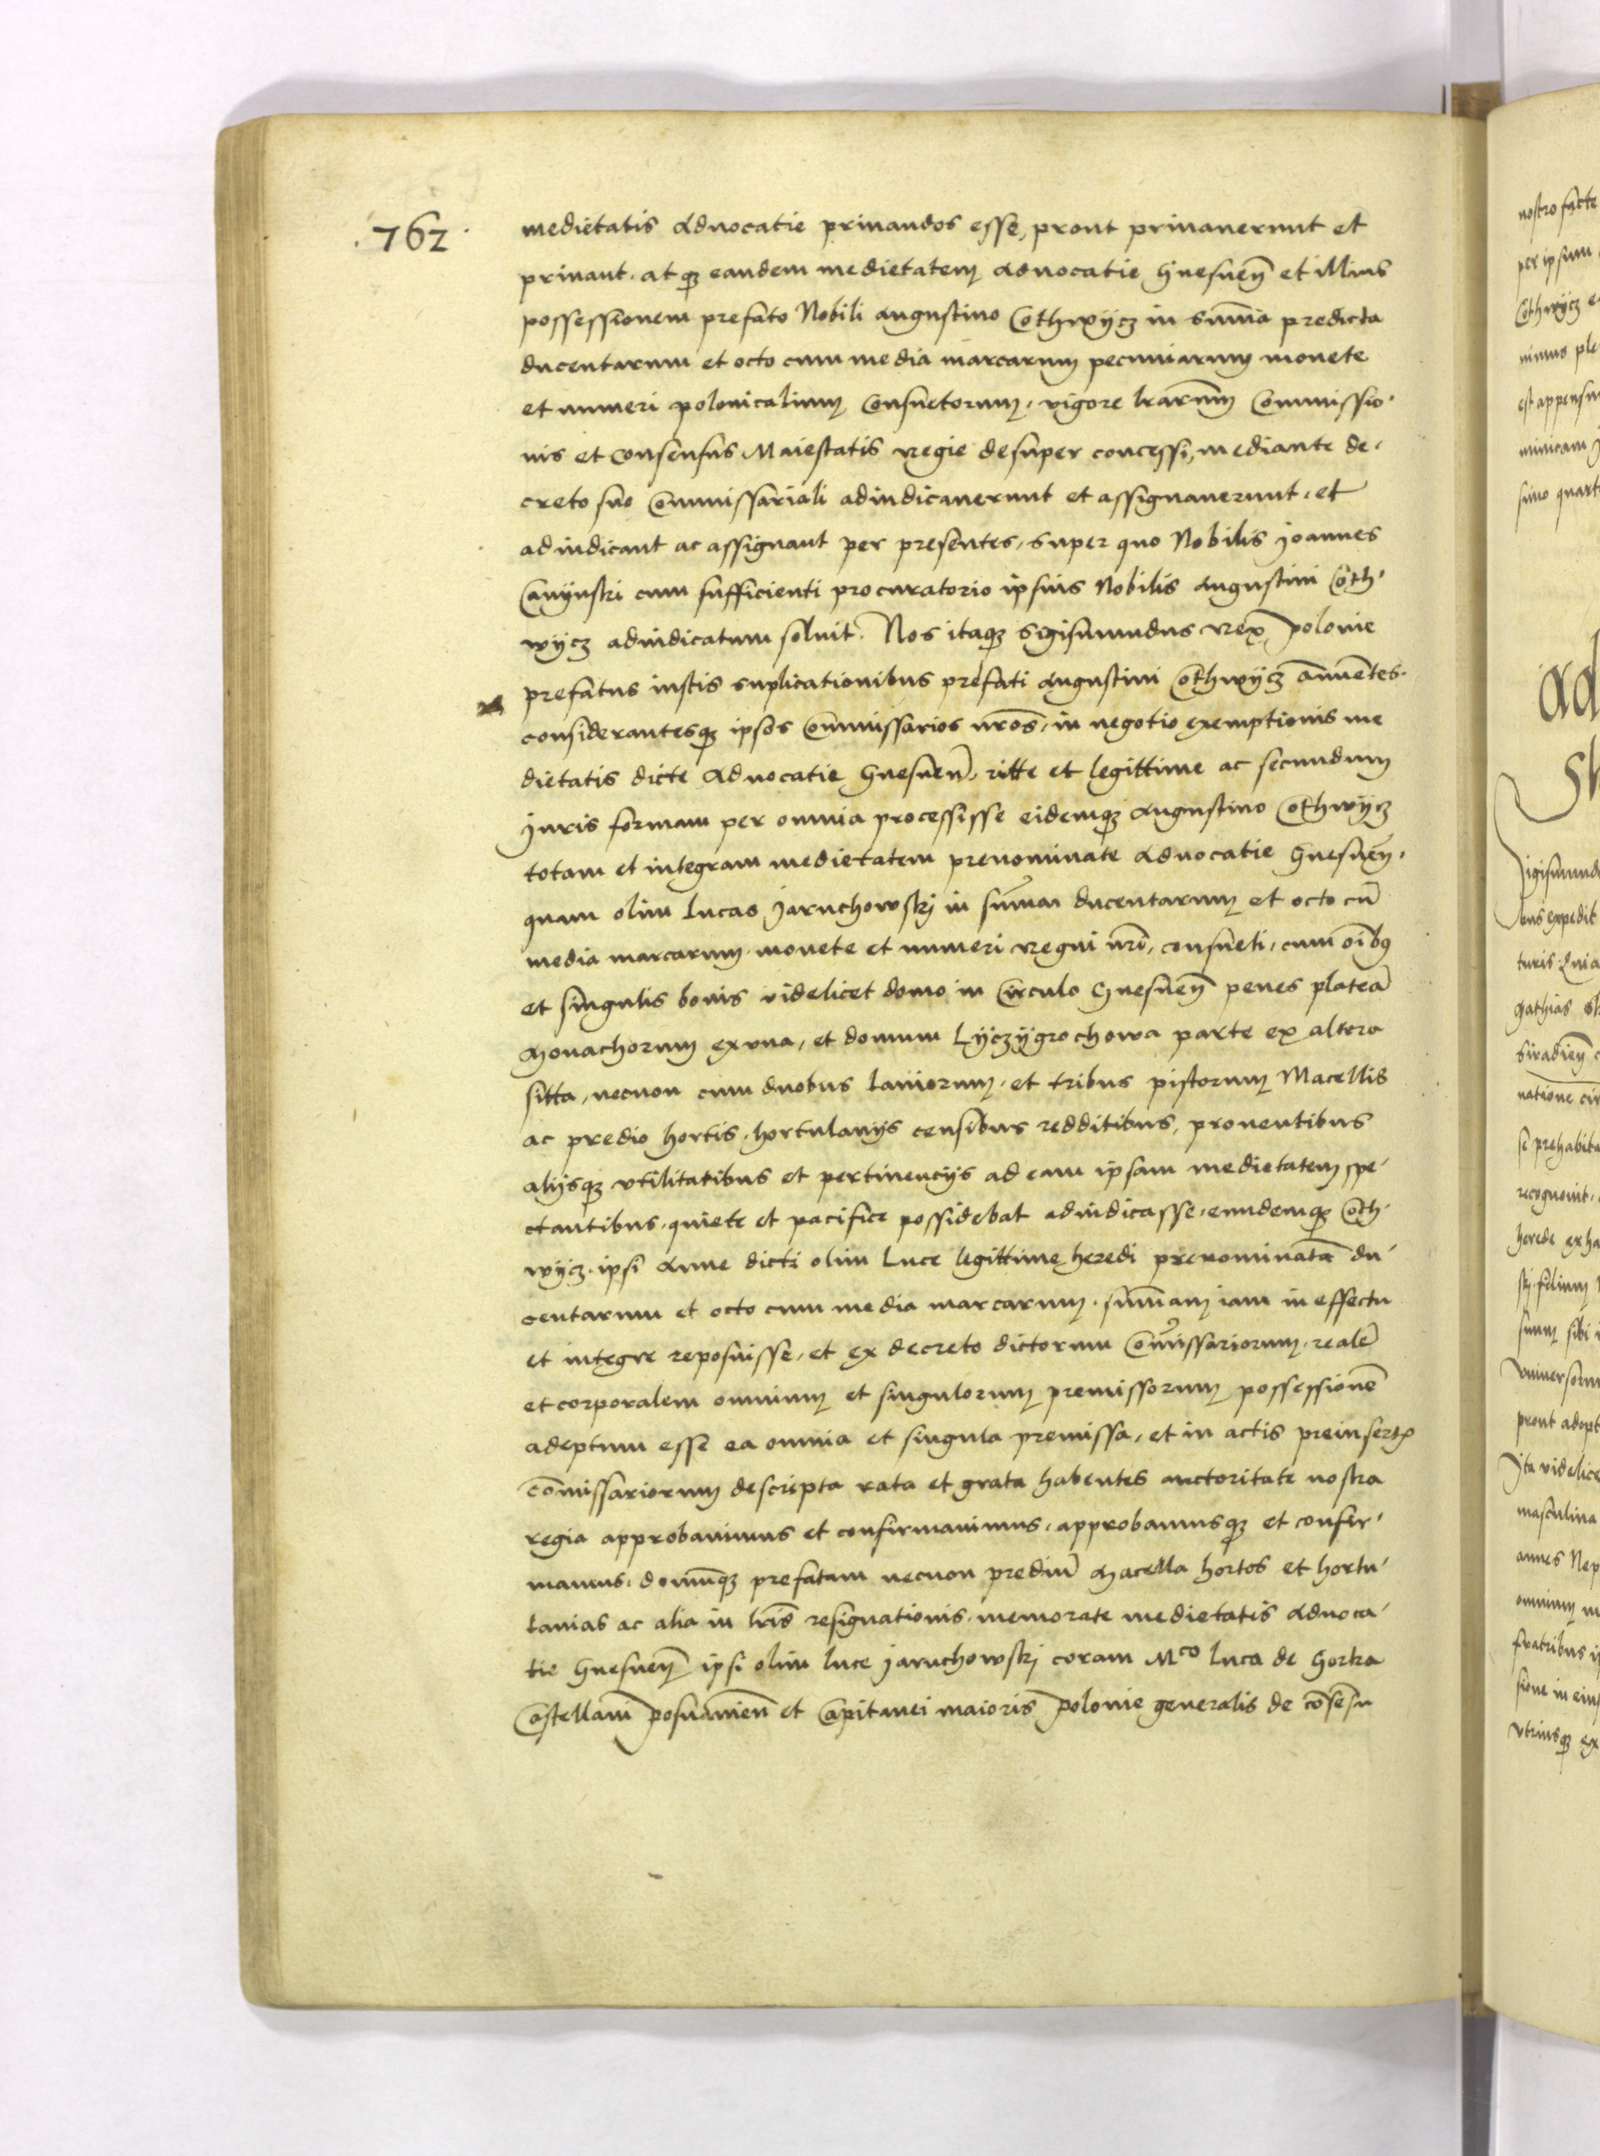 .762.
medietatis advocatie privandos esse, prout privaverunt et
privant. atqȝ eandem medietatem advocatie Gnesneñ et illius
possessionem prefato Nobili augustino Cothwÿcz in Sum̄a predicta
ducentarum et octo cum media marcarum pecuniarum monete
et numeri polonicalium Consuetorum, vigore l̄rarum Commissio-
nis et Consensus Maiestatis Regie desuper concessi, mediante de-
creto suo Com̄issariali adiudicaverunt et assignaverunt, et
adiudicant ac assignant per presentes, super quo Nobilis Joannes
cum sufficienti procuratorio ipsius Nobilis augustini Coth-
wÿcz adiudicatum solvit. Nos itaqȝ Sigismundus Rex polonie
prefatus iustis suplicationibus prefati augustini Cothwÿcz annuentes.
considerantesqȝ ipsos Com̄issarios nr̄os, in negotio exemptionis me
dietatis dicte advocatie Gnesneñ, ritte et legittime ac secundum
Juris formam per omnia processisse eidemqȝ augustino Cothwÿcz
totam et integram medietatem prenominate advocatie Gnesneñ,
quam olim lucas Jaruchowskj in sum̄am ducentarum et octo cū
media marcarum monete et numeri Regni nr̄i, consueti, cum oībꝰ
et singulis bonis videlicet domo in Circulo Gnesneñ penes plateā
Monachorum ex una, et domum Lÿczÿgrochowa parte ex altera
sitta, necnon cum duobus laniorum et tribus pistorum Macellis
ac predio hortis, hortulanÿs censibus redditibus, proventibus
alÿsqȝ vtilitatibus et pertinencÿs ad eam ipsam medietatem spe-
ctantibus, quiete et pacifice possidebat adiudicasse, eundemqȝ Coth-
wÿcz, ipsi Anne dicti olim Luce legittime heredi prenominatā du-
centarum et octo cum media marcarum sum̄am iam in effectu
et integre reposuisse, et ex decreto dictorum Com̄issariorum, realē
et corporalem omnium et singulorum premissorum possessionē
adeptum esse ea omnia et singula premissa, et in actis preinsertꝭ
com̄issariorum descripta rata et grata habentes auctoritate nostra
regia approbavimus et confirmavimus, approbamusqȝ et confir-
mamus, domūqȝ prefatam necnon prediū Macella hortos et hortu-
lanias ac alia in l̄ris resignationis, memorate medietatis advoca-
tie Gnesneñ ipsi olim luce Jaruchowskj coram Mco Luca de Gorka
Castellani posnanieñ et Capitanei maioris polonie generalis de cōsēsu
nostro facte
per ipsum
Cothwÿcz e
est appensum
simo quart
ad
us expedit
turis Quia
Mathias
Siradieñ
natione
si prehabita
recognovit
herede ex ha
filium
suum sibi
Universorum
prout adept
Ita videlice
masculina
annes Nep
omnium
fratribus
sione in eius
vtriusqȝ ex